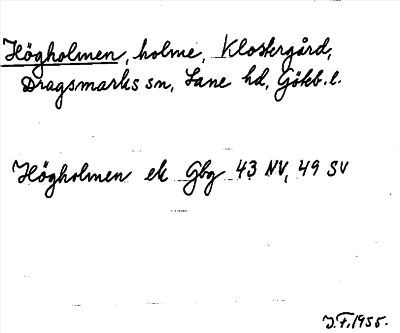 Högholmen, holme, Klostergård,
Dragsmarks sn, Lane hd, Gökb. l.
Högholmen ek Gbg 43 NV, 49 SV
J.F. 1955.